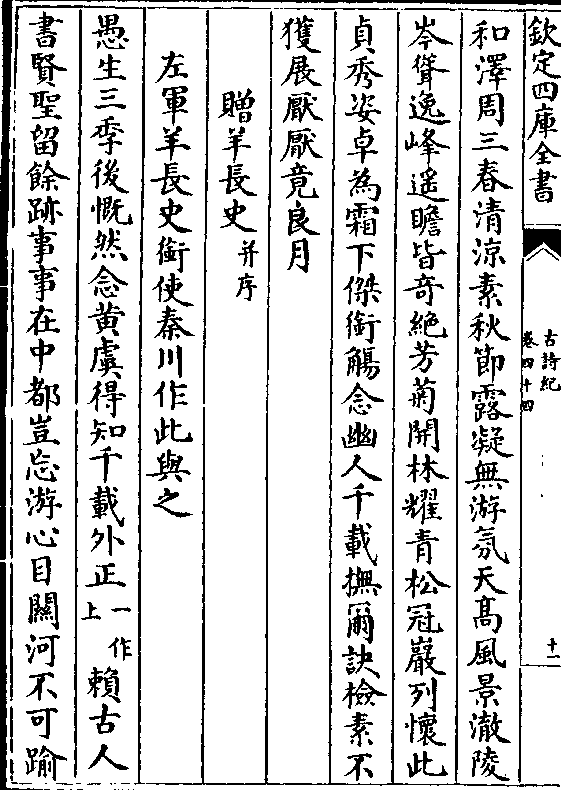 欽定四庫全書
古詩紀
卷四十四
十一
和澤周三春清涼素秋節露凝無游氛天髙風景澈陵
岑聳逸峰遥瞻皆奇絶芳菊開林耀青松冠巖列懷此
貞秀姿卓為霜下傑銜觴念幽人千載撫爾訣檢素不
獲展厭厭竟良月
贈羊長史并序
左軍羊長史銜使秦川作此與之
愚生三季後慨然念黄虞得知千載外正一作上賴古人
書賢聖留餘跡事事在中都豈忘游心目關河不可踰